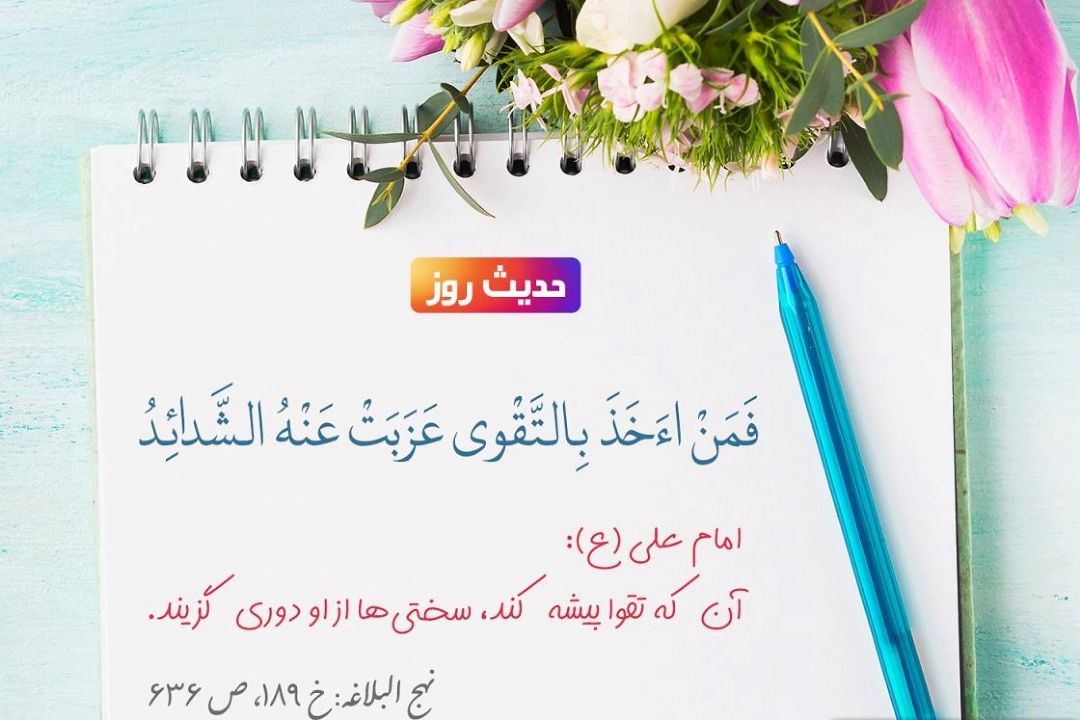 حدیث روز
فَمَنْ اءَخَذَ بِالتَّقْوی عَزَبَتْ عَنْهُ الشَّدائِدُ
امام علی (ع):
آن که تقوا پیشه کند، سختی‌ها از او دوری گزیند.
نهج البلاغه: خ ۱۸۹، ص ۶۳۶